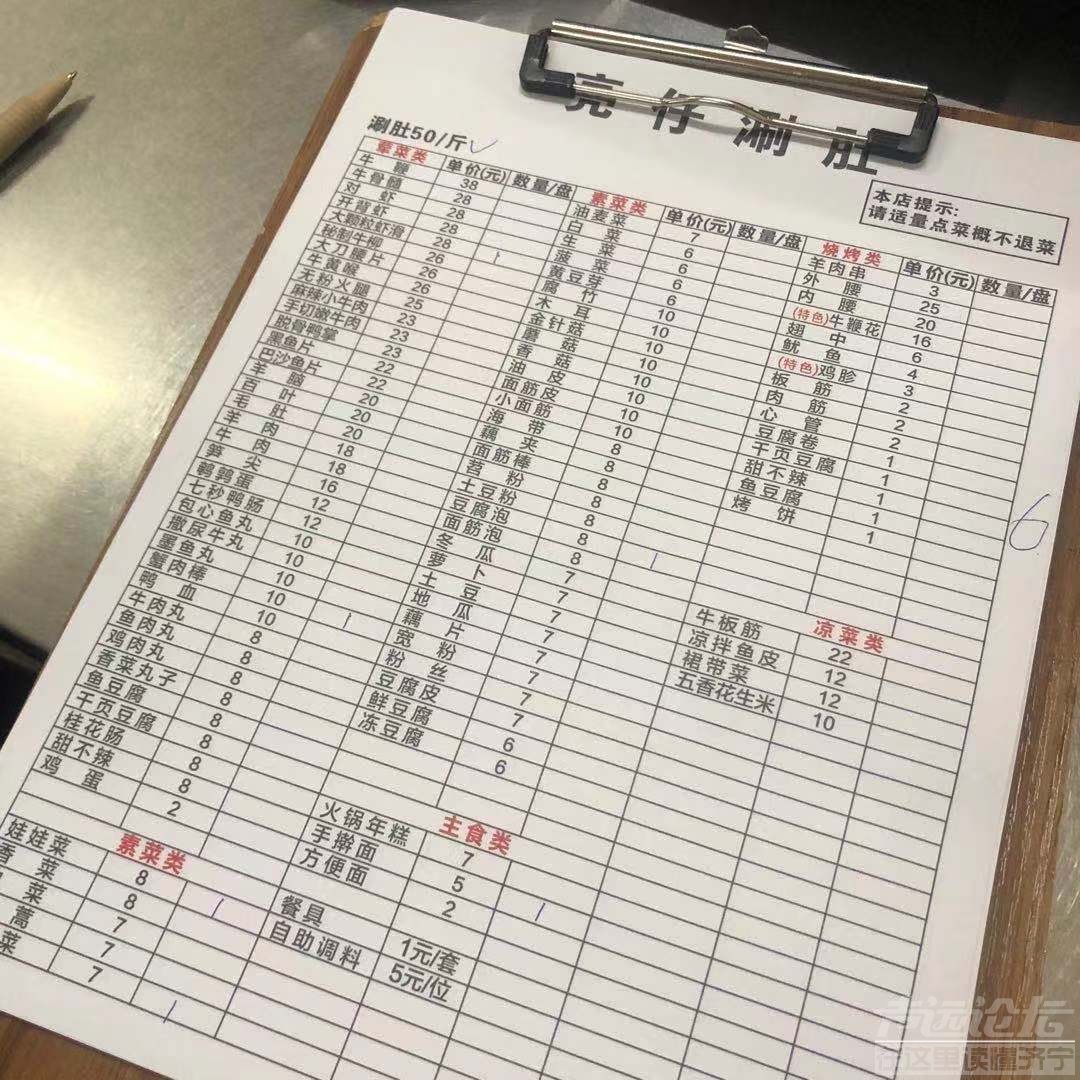 亮仔涮肚
涮肚50/斤
本店提示:
请适量点菜概不退菜
荤菜类 单价(元) 数量/盘
牛鞭 38
牛骨髓 28
对虾 28
开背虾
大颗粒虾滑
秘制牛柳
大刀腰片
牛黄喉
无粉火腿
麻辣小牛肉
手切嫩牛肉
脱骨鸭掌
黑鱼片
巴沙鱼片
羊脑
百叶
毛肚
羊肉
牛肉
笋尖
鹌鹑蛋
七秒鸭肠
包心鱼丸
撒尿牛丸
墨鱼丸
蟹肉棒
鸭血
牛肉丸
鱼肉丸
鸡肉丸
香菜丸子
鱼豆腐
千页豆腐
桂花肠
甜不辣 8
鸡蛋 2
素菜类
娃娃菜 8
香菜 8
菜 7
蒿 7
菜 7
素菜类 单价(元) 数量/盘
油麦菜 7
白菜 6
生菜 6
菠菜 6
黄豆芽 6
腐竹 10
木耳 10
金针菇 10
蘑菇 10
香菇 10
油皮 10
面筋皮
小面筋
海带
藕夹
面筋棒
苕粉
土豆粉
豆腐泡
面筋泡
冬瓜
萝卜
土豆
地瓜
藕片
宽粉
粉丝
豆腐皮
鲜豆腐 6
冻豆腐 6
主食类
火锅年糕 7
手擀面 5
方便面 2
餐具 1元/套
自助调料 5元/位
烧烤类 单价(元) 数量/盘
羊肉串 3
外腰 25
内腰 20
(特色)牛鞭花 16
翅中 6
鱿鱼 4
(特色)鸡胗 3
板筋 2
肉筋 2
心管 2
豆腐卷 1
千页豆腐 1
甜不辣 1
鱼豆腐 1
烤饼 1
6
凉菜类
牛板筋 22
凉拌鱼皮 12
裙带菜 12
五香花生米 10
在这里读懂济宁